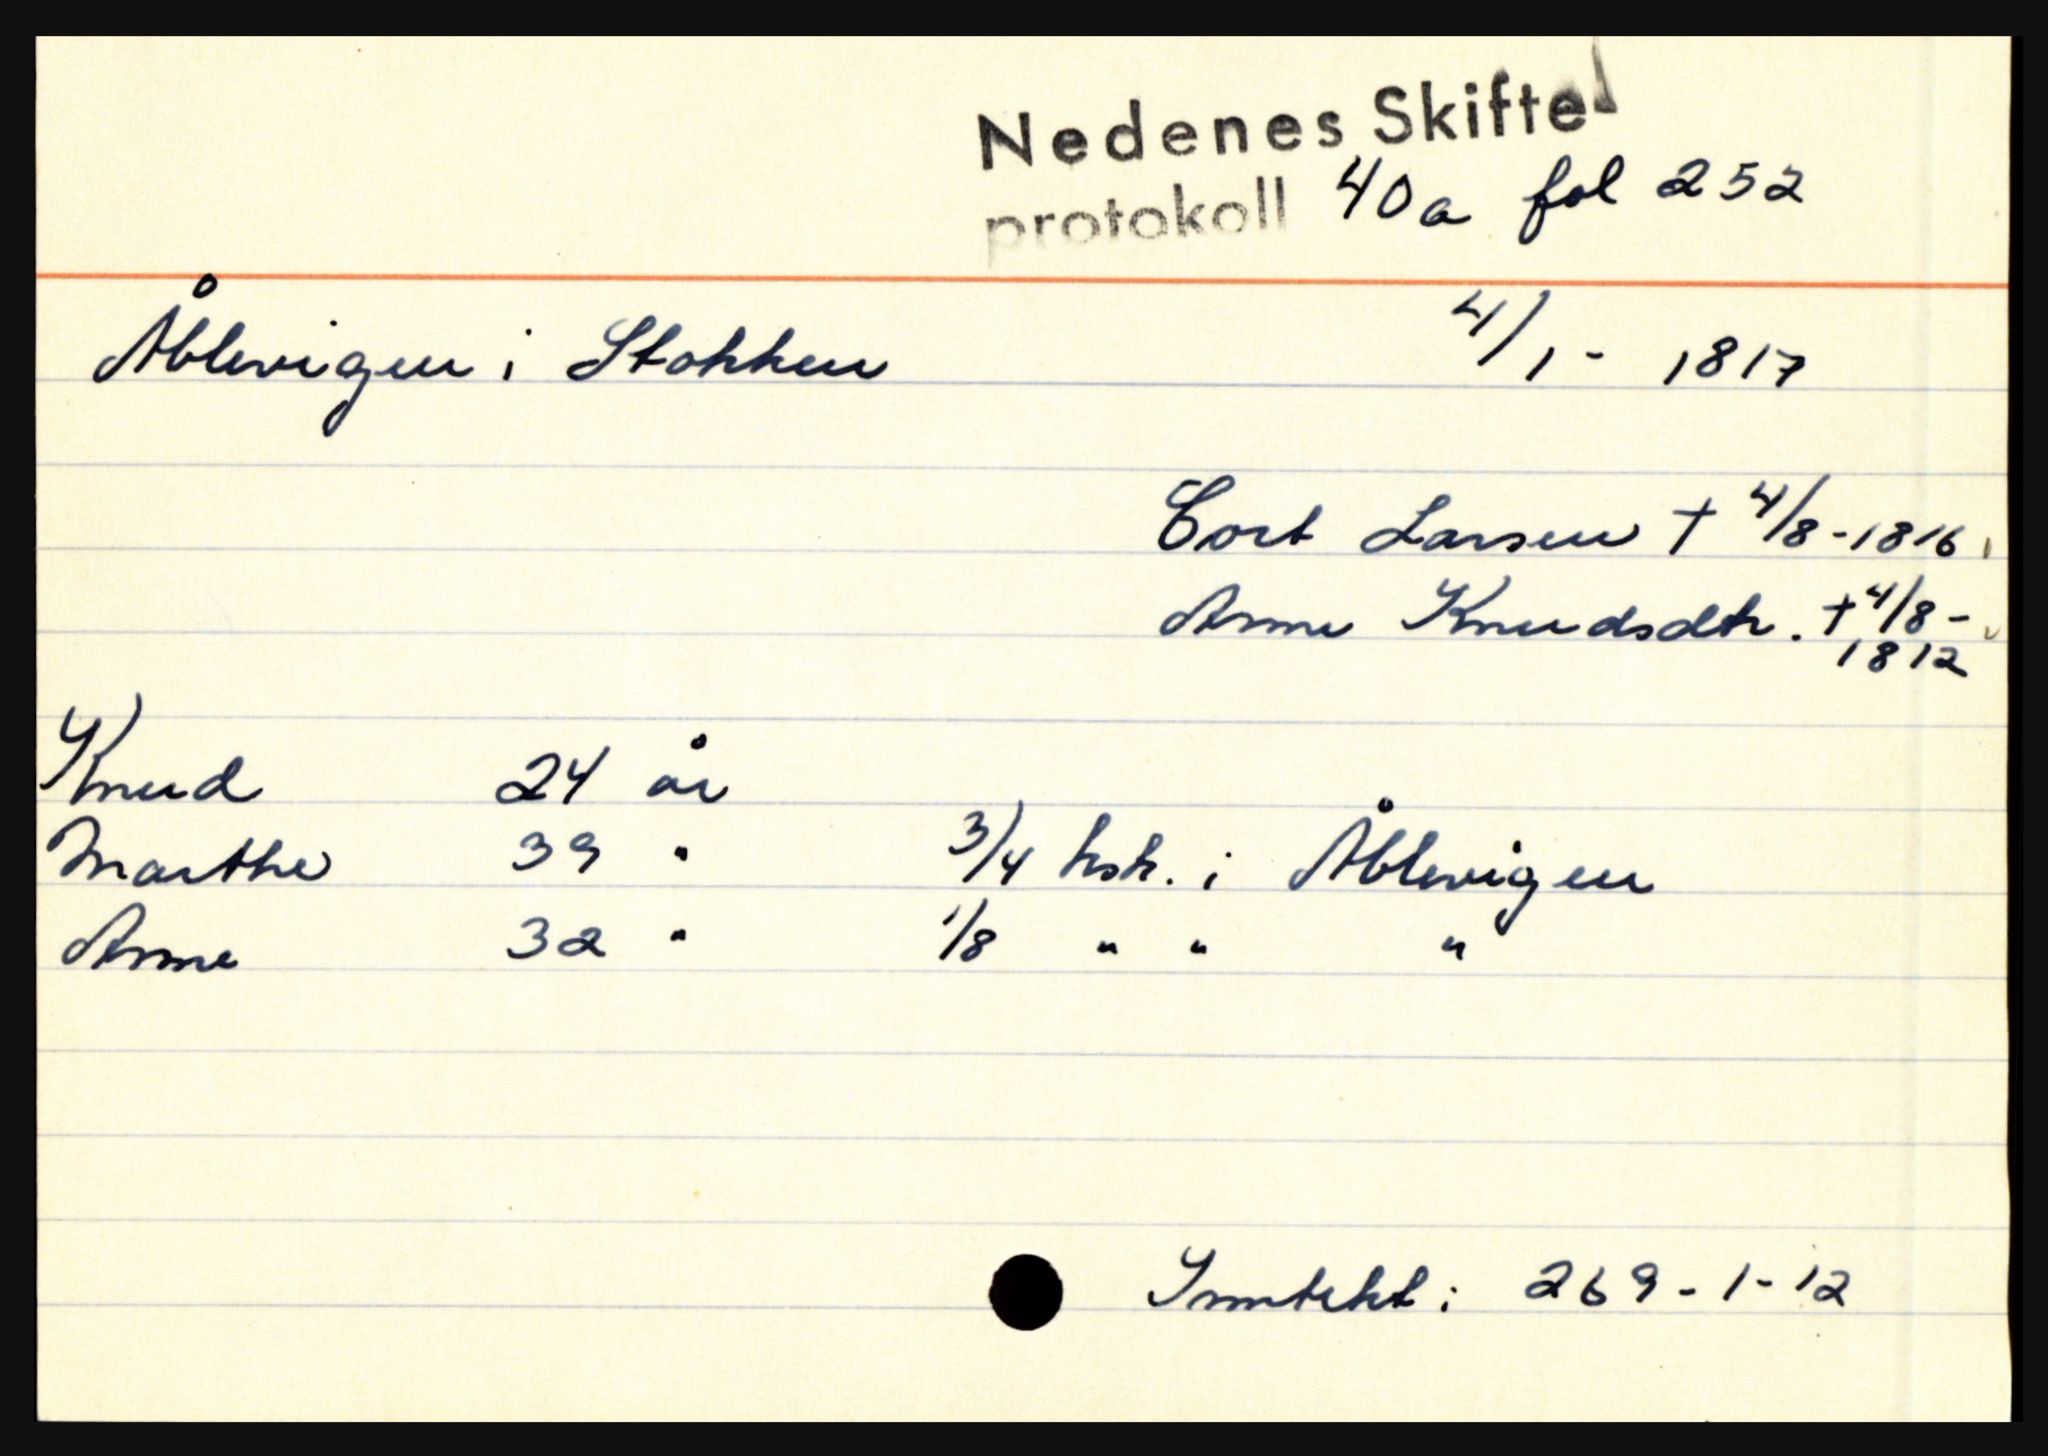 Nedenes Skifte
protokoll 40a fol 252
Åblevigen i Stokken 4/1 - 1817
Cort Larsen † 4/8 - 1816
Anne Knudsdtr. † 4/8 -
1812
Knud 24 år
Marthe 39 " 3/4 hsk. i Åblevigen
Anne 32 " 1/8 " " "
Inntekt: 269 - 1 - 12